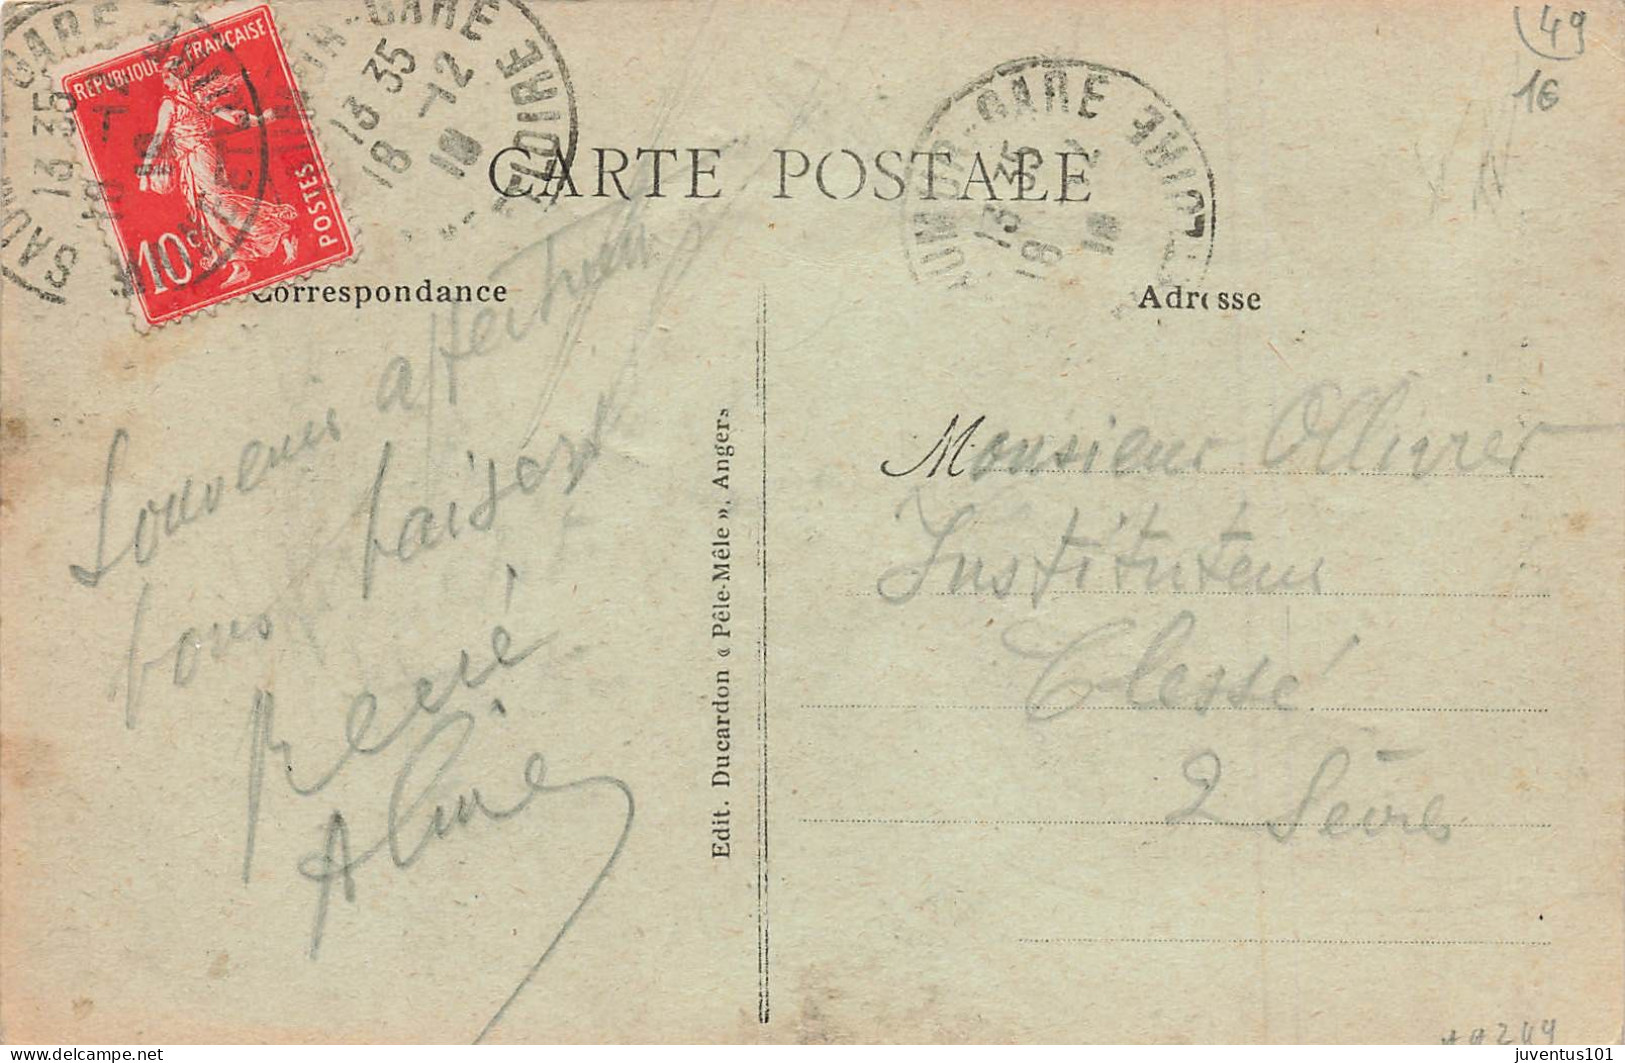 (49
16
SAUMUR-GARE
13 35
18 -12
19
MAINE-ET-LOIRE
REPUBLIQUE FRANÇAISE
POSTES
10c
13 35
18 -12
19
LOIRE
CARTE POSTALE
Correspondance
Adresse
Souvenir affectueux
bons baisers
René
Aline
Edit. Ducardon « Pêle-Mêle », Angers
Monsieur Ollivier
Instituteur
Clessé
2 Sèvres
juventus101